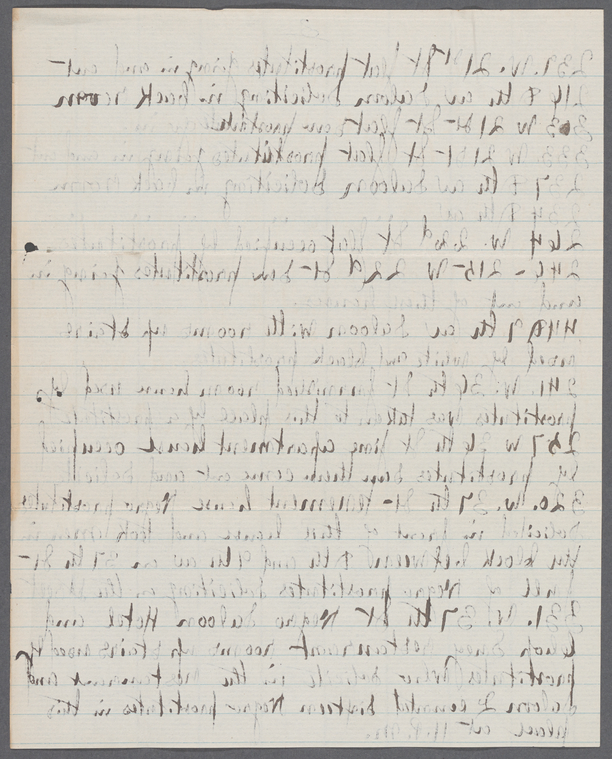 239. W. 21st St flat prostitutes going in and out
214 8 th av Saloon Soliciting in back room
303 W 21st St flat saw prostitutes
233 W 21st St flat prostitutes going in and out
237 8 th av Saloon Soliciting in back room
234 8 th av
264 W. 22d St flat occupied by prostitutes
246 - 215 W 22d St Saw prostitutes going in
and out of these houses
441 7 th av Saloon with rooms up stairs
used by white and black prostitutes
241. W. 36 th St furnished room house used by
prostitutes was taken to this place by a prostitute
257 W 36 th St fine apartment house occupied
by prostitutes saw them come out and Solicit
320. W. 37 th St tenement house Negro prostitutes
Solicited in front of this house and took men in
the block between 8 th and 9 th av on 37 th St
is full of Negro prostitutes Soliciting on the Street
331. W. 37 th St Negro Saloon Hotel and
restaurant rooms up stairs used by
prostitutes who Solicit in the restaurant and
Saloon I counted sixteen Negro prostitutes in this
place at 11. P. M.